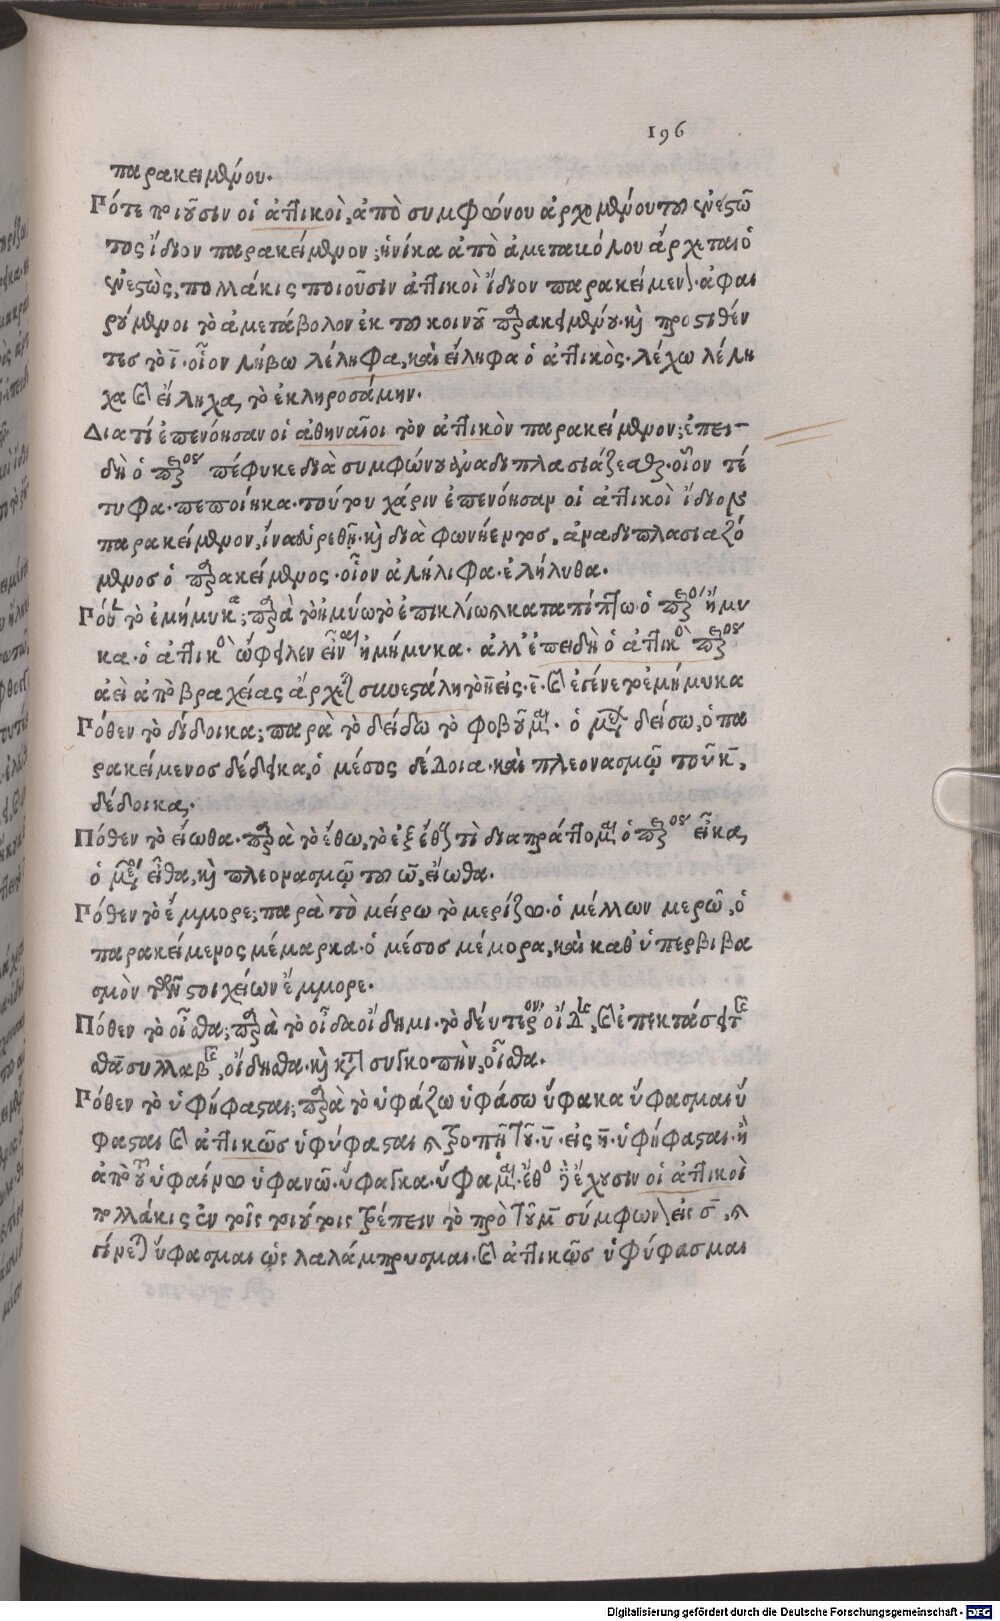 196
παρακειμένου.
Πότε ποιοῦσιν οἱ ἀττικοὶ, ἀπὸ συμφώνου ἀρχομένου τοῦ ἐνεστῶ
τος ἴδιον παρακείμενον; ἡνίκα ἀπὸ ἀμεταβόλου ἄρχεται ὁ
ἐνεστὼς, πολλάκις ποιοῦσιν ἀττικοὶ ἴδιον παρακείμενον. ἀφαι
ρούμενοι τὸ ἀμετάβολον ἐκ τοῦ κοινοῦ παρακειμένου. καὶ προστιθέν
τες τὸ ῑ. οἷον λήβω λέληφα, καὶ εἴληφα ὁ ἀττικὸς. λέχω λέλη
χα καὶ εἴληχα, τὸ ἐκληροσάμην.
Διατί ἐπενόησαν οἱ ἀθηναῖοι τὸν ἀττικὸν παρακείμενον; ἐπει-
δὴ ὁ παρακείμενος πέφυκε διὰ συμφώνου ἀναδιπλασιάζεσθαι. οἷον τέ
τυφα. πεποίηκα. τούτου χάριν ἐπενόησαν οἱ ἀττικοὶ ἴδιον
παρακείμενον, ἵνα εὑρεθῇ. καὶ διὰ φωνήεντος, ἀναδιπλασιαζό
μενος ὁ παρακείμενος. οἷον ἀλήλιφα. ἐλήλυθα.
Πόθεν τὸ ἐμήμυκε; παρὰ τὸ ἠμύω τὸ ἐπικλίω καὶ καταπίπτω. ὁ παρακείμενος ἤμυ
κα. ὁ ἀττικὸς ὤφειλεν εἶναι ἠμήμυκα. ἀλλ' ἐπειδὴ ὁ ἀττικὸς παρακείμενος
ἀεὶ ἀπὸ βραχείας ἄρχεται συνεστάλη τὸ η̄ εἰς ε̄. καὶ ἐγένετο ἐμήμυκα
Πόθεν τὸ δέδοικα; παρὰ τὸ δείδω τὸ φοβοῦμαι. ὁ μέλλων δείσω, ὁ πα
ρακείμενος δέδεικα, ὁ μέσος δέδοια. καὶ πλεονασμῷ τοῦ κ̄,
δέδοικα.
Πόθεν τὸ εἴωθα. παρὰ τὸ ἔθω, τὸ ἐξ ἔθους τὶ διαπράττομαι ὁ παρακείμενος εἶκα,
ὁ μέσος εἶθα, καὶ πλεονασμῷ τοῦ ω̄, εἴωθα.
Πόθεν τὸ ἔμμορε; παρὰ τὸ μείρω τὸ μερίζω. ὁ μέλλων μερῶ, ὁ
παρακείμενος μέμαρκα. ὁ μέσος μέμορα, καὶ καθ' ὑπερβιβα
σμὸν τῶν στοιχείων ἔμμορε.
Πόθεν τὸ οἶσθα; παρὰ τὸ οἶδα οἴδημι. τὸ δεύτερον οἴδης, καὶ ἐπεκτάσει τῆς
θα συλλαβῆς, οἴδησθα. καὶ κατὰ συγκοπὴν, οἶσθα.
Πόθεν τὸ ὑφήφασται; παρὰ τὸ ὑφάζω ὑφάσω ὕφακα ὕφασμαι ὕ
φασται καὶ ἀττικῶς ὑφύφασται καὶ τροπῇ τοῦ ῡ. εἰς η̄. ὑφήφασται. ἢ
ἀπὸ τοῦ ὑφαίνω ὑφανῶ. ὕφαγκα. ὕφαμμαι. ἔθος δὲ ἔχουσιν οἱ ἀττικοὶ
πολλάκις ἐν τοῖς τοιούτοις τρέπειν τὸ πρὸ τοῦ μ̄ σύμφωνον εἰς σ̄, καὶ
γίνεται ὕφασμαι ὡς λαλάμπρυσμαι. καὶ ἀττικῶς ὑφύφασμαι
Digitalisierung gefördert durch die Deutsche Forschungsgemeinschaft - DFG